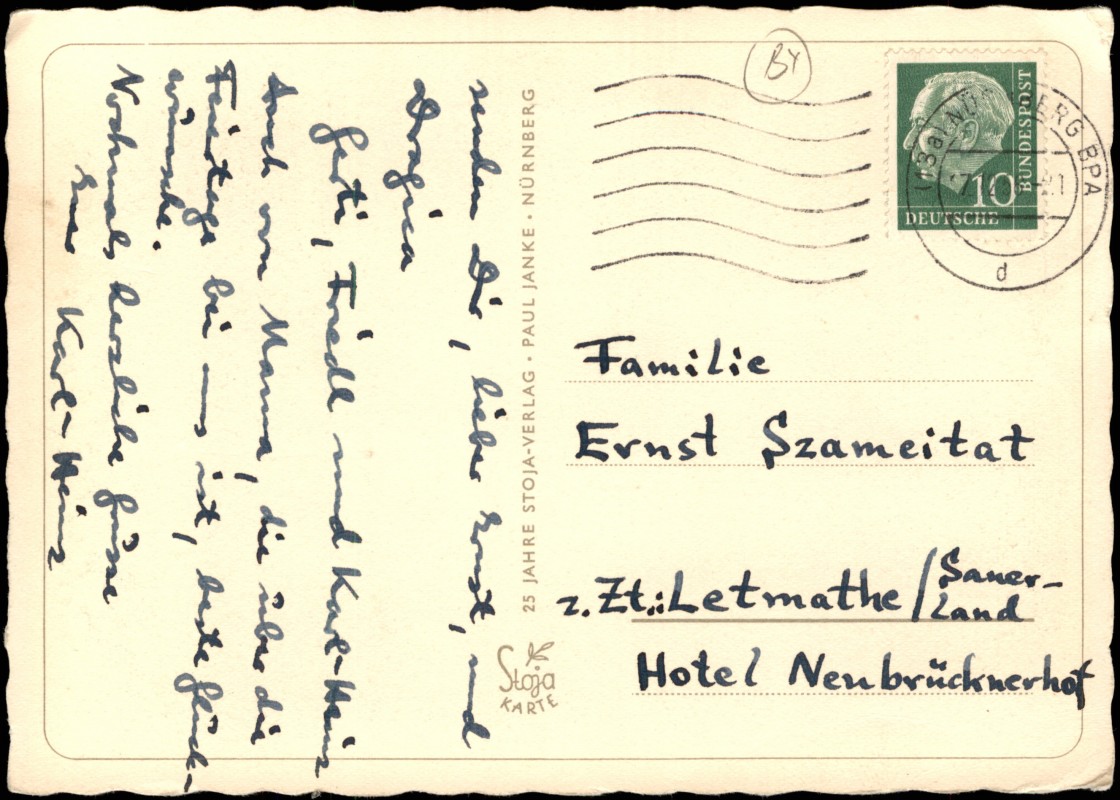 senden Dir, lieber Ernst, und
Dragica
Gerti, Friedl und Karl-Heinz
Auch von Mama, die über die
Feiertage bei uns ist, beste Glück-
wünsche.
Nochmals herzliche Grüsse
Euer Karl-Heinz
25 JAHRE STOJA-VERLAG · PAUL JANKE · NÜRNBERG
Stoja
KARTE
BY
10
BUNDESPOST
DEUTSCHE
(13a) NÜRNBERG BPA
d
Familie
Ernst Szameitat
z. Zt.: Letmathe / Sauer-
land
Hotel Neubrücknerhof